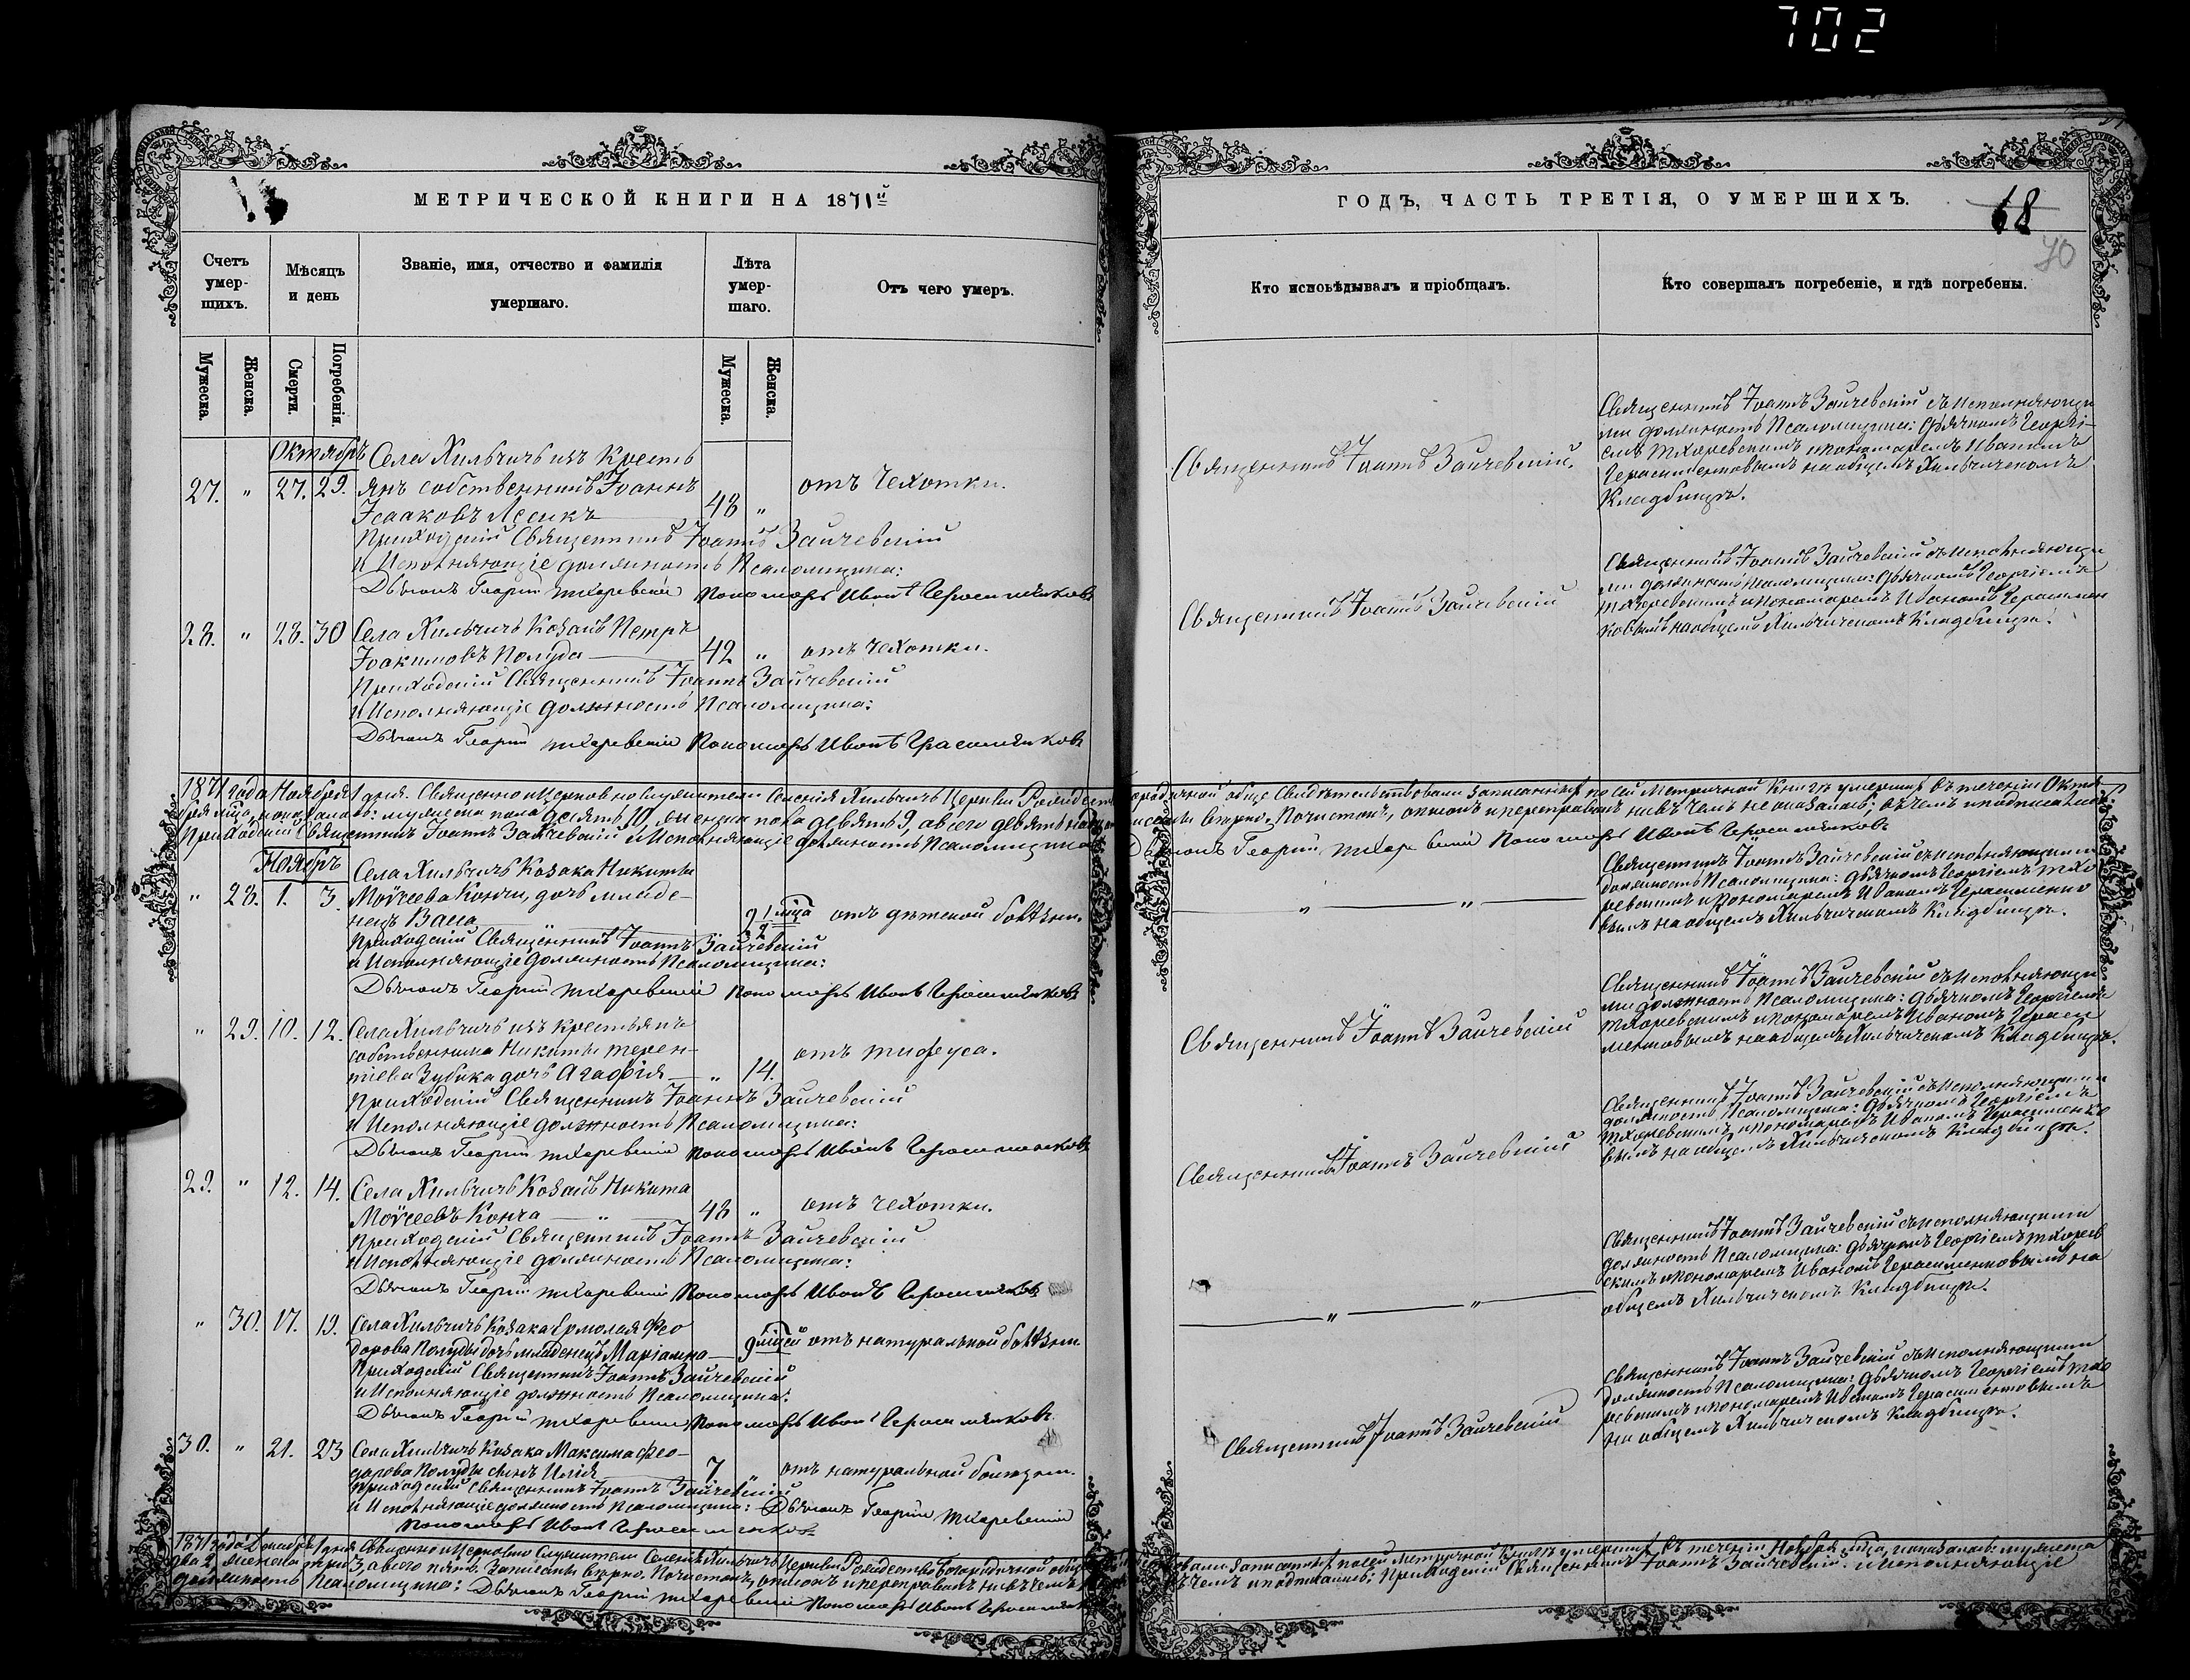 702
МЕТРИЧЕСКОЙ КНИГИ НА 1871й
Счетъ умер-шихъ.
Мѣсяцъ и день
Званіе, имя, отчество и фамилія умершаго.
Лѣта умер-шаго.
Отъ чего умеръ.
Мужеска.
Женска.
Смерти.
Погребенія.
Мужеска.
Женска.
Октябрь
Села Хильчичь изъ Кресть
27. " 27. 29. янъ собственникъ Іоаннъ
Ісааковъ Лесикъ 48 " отъ Чехотки.
Приходскій Священникъ Іоаннъ Зайчевскій
и Исполняющіе должность Псаломщика:
Дьячокъ Георгій Тхоревскій Пономарь Иванъ Герасименковъ
28. " 28. 30 Села Хильчичь Козакъ Петръ
Іоакимовъ Полуда 42 " отъ чехотки.
Приходскій Священникъ Іоаннъ Зайчевскій
и Исполняющіе должность Псаломщика:
Дьячокъ Георгій Тхоревскій Пономарь Иванъ Герасименковъ
1871 года Ноября 1 дня. Священно и Церковно служители Селенія Хильчичь Церкви Рождество
бря м-ца, показалось: мужеска пола десять 10, женска пола девять 9, а всего девятнадцать
Приходскій Священникъ Іоаннъ Зайчевскій и Исполняющіе должность Псаломщика
Ноябрь
Села Хильчичь Козака Никиты
" 28. 1. 3. Моѵсеева Кончи, дочь младе-
нецъ Васса отъ дѣтской болѣзни.
Приходскій Священникъ Іоаннъ Зайчевскій
и Исполняющіе должность Псаломщика:
Дьячокъ Георгій Тхоревскій Пономарь Иванъ Герасименковъ
" 29. 10. 12. Села Хильчичь изъ крестьянъ
собственника Никиты Терен-
тіева Зубика дочь Агафія " 14. отъ тифуса.
Приходскій Священникъ Іоаннъ Зайчевскій
и Исполняющіе должность Псаломщика:
Дьячокъ Георгій Тхоревскій Пономарь Иванъ Герасименковъ
29. " 12. 14. Села Хильчичь Козакъ Никита
Моѵсеевъ Конча " 48 " отъ чехотки.
Приходскій Священникъ Іоаннъ Зайчевскій
и Исполняющіе должность Псаломщика:
Дьячокъ Георгій Тхоревскій Пономарь Иванъ Герасименковъ
" 30. 17. 19. Села Хильчичь Козака Ермолая Фео
дорова Полуды дочь младенецъ Маріамна 9 м-цей отъ натуральной болѣзни.
Приходскій Священникъ Іоаннъ Зайчевскій
и Исполняющіе должность Псаломщика:
Дьячокъ Георгій Тхоревскій Пономарь Иванъ Герасименковъ
30. " 21. 23 Села Хильчичь Козака Максима Фео-
дорова Полуды сынъ Илія 7 " отъ натуральной болѣзни.
Приходскій Священникъ Іоаннъ Зайчевскій
и Исполняющіе должность Псаломщика: Дьячокъ Георгій Тхоревскій
Пономарь Иванъ Герасименковъ
1871 года Декабря 1 дня Священно и Церковно Служители Селенія Хильчичь Церкви Рождество Богородичной
два 2, женска три 3, а всего пять. Записаны вѣрно. Почистокъ, описокъ и переправокъ ни въ чемъ
должность Псаломщика: Дьячокъ Георгій Тхоревскій Пономарь Иванъ Герасименковъ
ГОДЪ, ЧАСТЬ ТРЕТІЯ, О УМЕРШИХЪ.
68
70
Кто исповѣдывалъ и пріобщалъ.
Кто совершалъ погребеніе, и гдѣ погребены.
Священникъ Іоаннъ Зайчевскій.
Священникъ Іоаннъ Зайчевскій съ Исполняющи
ми должность Псаломщика: Дьячкомъ Георгі-
емъ Тхоревскимъ и пономаремъ Иваномъ
Герасименковымъ на общемъ Хильчичскомъ
Кладбищѣ.
Священникъ Іоаннъ Зайчевскій
Священникъ Іоаннъ Зайчевскій съ Исполняющи
ми должность Псаломщика: Дьячкомъ Георгіемъ
Тхоревскимъ и пономаремъ Иваномъ Герасимен
ковымъ на общемъ Хильчичскомъ Кладбищѣ.
городичной обще Свидѣтельствовали записанныхъ по сей Метричной Книгѣ умершихъ въ теченіи Октя
писаны вѣрно. Почистокъ, описокъ и переправокъ ни въ чемъ не оказалось; въ чемъ и подписались:
Дьячокъ Георгій Тхоревскій Пономарь Иванъ Герасименковъ
" "
Священникъ Іоаннъ Зайчевскій съ Исполняющими
должность Псаломщика: Дьячкомъ Георгіемъ Тхо
ревскимъ и Пономаремъ Иваномъ Герасименко
вымъ на общемъ Хильчичскомъ Кладбищѣ.
Священникъ Іоаннъ Зайчевскій
Священникъ Іоаннъ Зайчевскій съ Исполняющи
ми должность Псаломщика: Дьячкомъ Георгіемъ
Тхоревскимъ и пономаремъ Иваномъ Гераси
менковымъ на общемъ Хильчичскомъ Кладбищѣ.
Священникъ Іоаннъ Зайчевскій
Священникъ Іоаннъ Зайчевскій съ Исполняющими
должность Псаломщика: Дьячкомъ Георгіемъ
Тхоревскимъ и пономаремъ Иваномъ Герасименко
вымъ на общемъ Хильчичскомъ Кладбищѣ.
" "
Священникъ Іоаннъ Зайчевскій съ Исполняющими
должность Псаломщика: Дьячкомъ Георгіемъ Тхорев
скимъ и пономаремъ Иваномъ Герасименковымъ на
общемъ Хильчичскомъ Кладбищѣ.
Священникъ Іоаннъ Зайчевскій
Священникъ Іоаннъ Зайчевскій съ Исполняющими
должность Псаломщика: Дьячкомъ Георгіемъ Тхо
ревскимъ и пономаремъ Иваномъ Герасименковымъ
на общемъ Хильчичскомъ Кладбищѣ.
записанныхъ по сей Метричной Книгѣ умершихъ въ теченіи Ноября м-ца, показалось: мужеска
въ чемъ и подписались: Приходскій Священникъ Іоаннъ Зайчевскій и Исполняющіе